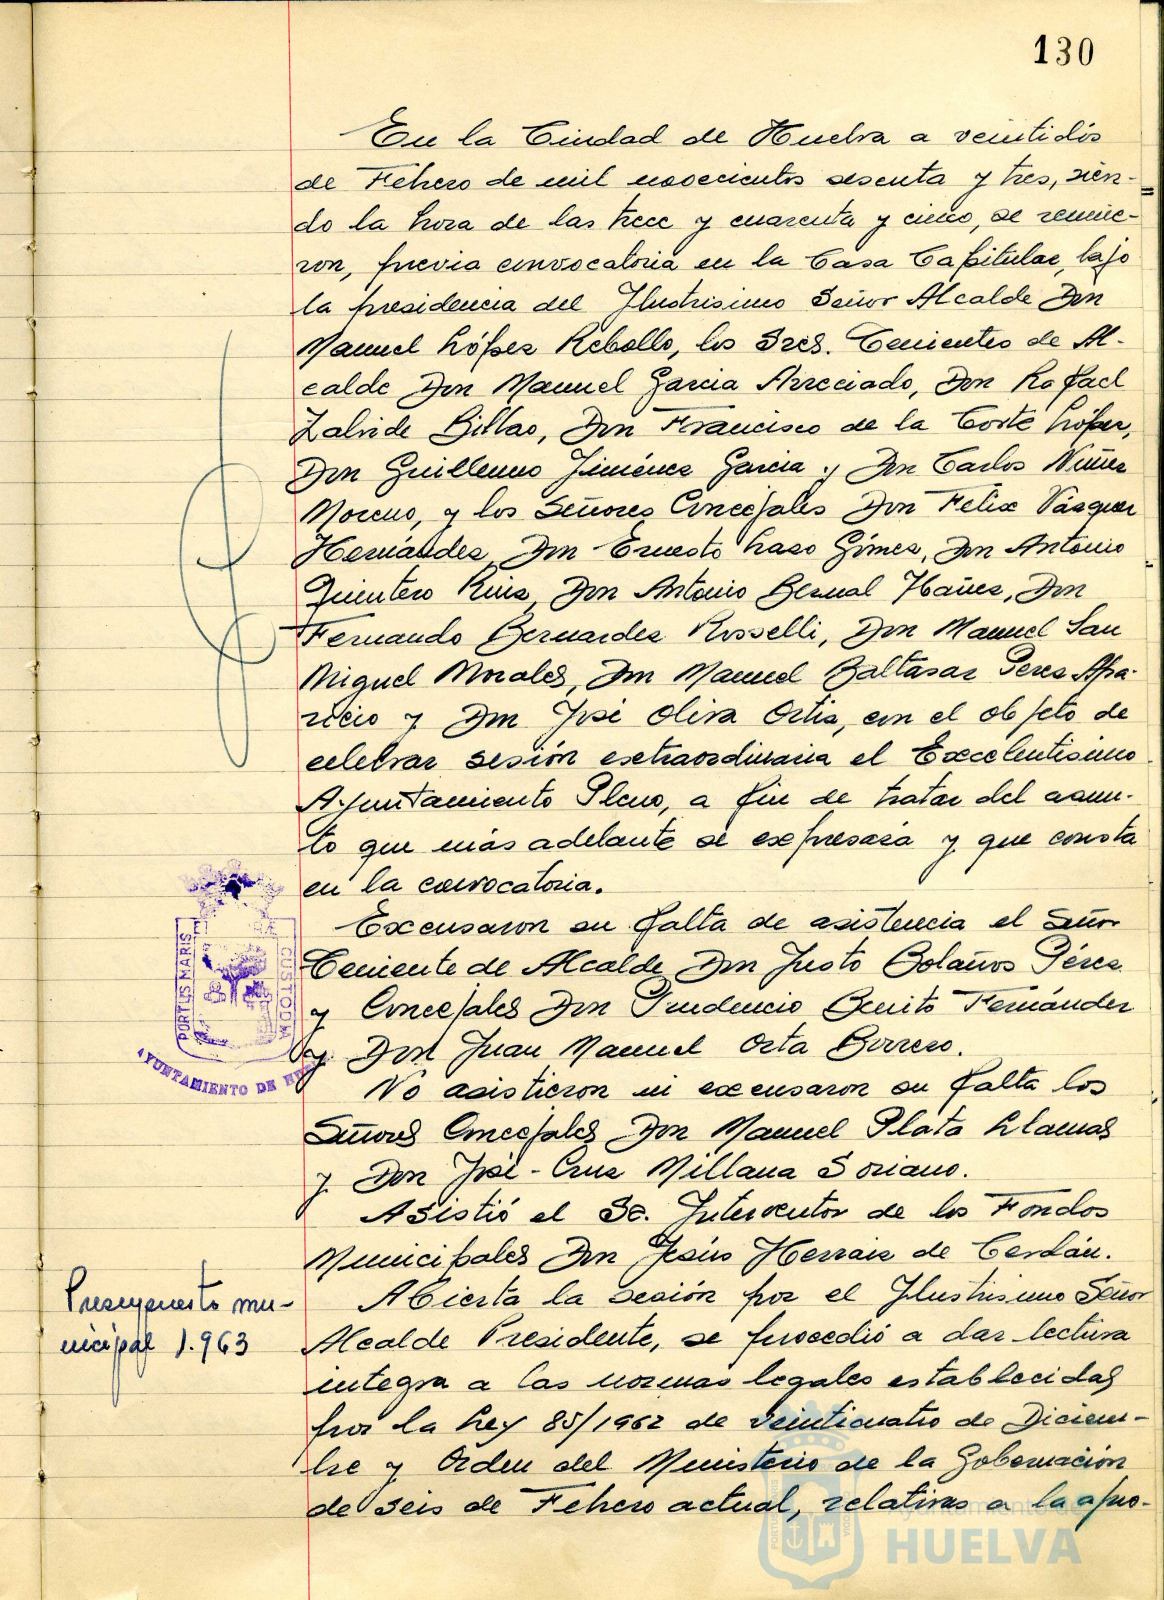 130
En la Ciudad de Huelva a veintidós
de Febrero de mil novecientos sesenta y tres, sien-
do la hora de las trece y cuarenta y cinco, se reunie-
ron, previa convocatoria en la Casa Capitular, bajo
la presidencia del Ilustrisimo Señor Alcalde Don
Manuel López Rebollo, los Sres. Tenientes de Al-
calde Don Manuel Garcia Arreciado, Don Rafael
Zalvide Bilbao, Don Francisco de la Corte López,
Don Guillermo Jiménez Garcia y Don Carlos Núñez
Moreno, y los Señores Concejales Don Felix Vázquez
Hernández, Don Ernesto Lazo Gómez, Don Antonio
Quintero Ruiz, Don Antonio Bernal Ibañez, Don
Fernando Bernardez Rosselli, Don Manuel San
Miguel Morales, Don Manuel Baltasar Perez Apa-
ricio y Don José Oliva Ortiz, con el objeto de
celebrar sesión extraordinaria el Excelentisimo
Ayuntamiento Pleno, a fin de tratar del asun-
to que más adelante se expresará y que consta
en la convocatoria.
Excusaron su falta de asistencia el Señor
Teniente de Alcalde Don Justo Bolaños Pérez
y Concejales Don Prudencio Benito Fernández
y Don Juan Manuel Orta Borrero.
No asistieron ni excusaron su falta los
Señores Concejales Don Manuel Plata Llamas
y Don José-Cruz Millana Soriano.
Asistió el Sr. Interventor de los Fondos
Municipales Don Jesús Herraiz de Cerdán.
Presupuesto mu-
nicipal 1.963
Abierta la sesión por el Ilustrisimo Señor
Alcalde Presidente, se procedió a dar lectura
integra a las normas legales establecidas
por la Ley 85/1962 de veinticuatro de Diciem-
bre y Orden del Ministerio de la Gobernación
de seis de Febrero actual, relativas a la apro-
PORTUS MARIS
ET
CUSTODIA
AYUNTAMIENTO DE
Ayuntamiento de
HUELVA